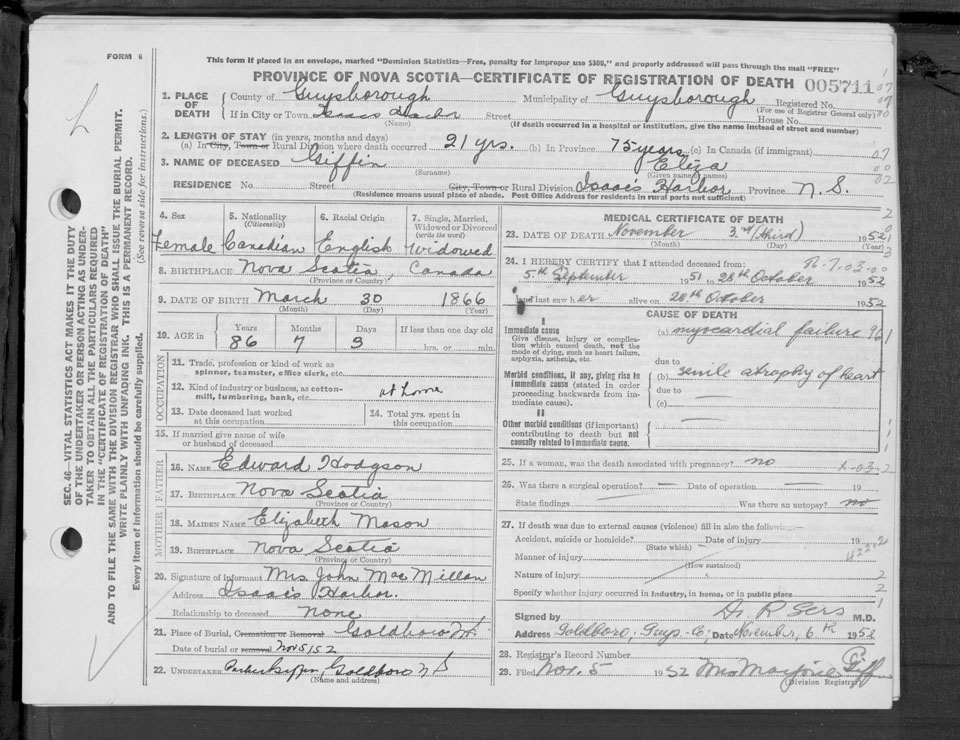 FORM 6
This form if placed in an envelope, marked "Dominion Statistics—Free, penalty for improper use $300," and properly addressed will pass through the mail "FREE"
PROVINCE OF NOVA SCOTIA—CERTIFICATE OF REGISTRATION OF DEATH 005711
1. PLACE OF DEATH
County of Guysborough Municipality of Guysborough Registered No.
(For use of Registrar General only)
If in City or Town Isaacs Harbr Street House No.
(Name) (If death occurred in a hospital or institution, give the name instead of street and number)
2. LENGTH OF STAY (in years, months and days)
(a) In City, Town or Rural Division where death occurred 21 yrs. (b) In Province 75 years (c) In Canada (if immigrant)
3. NAME OF DECEASED Giffin Eliza
(Surname) (Given or names)
RESIDENCE No. Street City, Town or Rural Division Isaac's Harbor Province N.S.
(Residence means usual place of abode. Post Office Address for residents in rural parts not sufficient)
4. Sex Female
5. Nationality (Citizenship) Canadian
6. Racial Origin English
7. Single, Married, Widowed or Divorced (write the word) Widowed
8. BIRTHPLACE Nova Scotia, Canada
(Province or Country)
9. DATE OF BIRTH March 30 1866
(Month) (Day) (Year)
10. AGE in Years Months Days If less than one day old
86 7 3 hrs. or min.
OCCUPATION
11. Trade, profession or kind of work as spinner, teamster, office clerk, etc.
12. Kind of industry or business, as cotton-mill, lumbering, bank, etc. at home
13. Date deceased last worked at this occupation
14. Total yrs. spent in this occupation
15. If married give name of wife or husband of deceased
FATHER
16. NAME Edward Hodgson
17. BIRTHPLACE Nova Scotia
(Province or Country)
MOTHER
18. MAIDEN NAME Elizabeth Mason
19. BIRTHPLACE Nova Scotia
(Province or Country)
20. Signature of informant Mrs. John MacMillan
Address Isaac's Harbor.
Relationship to deceased None
21. Place of Burial, Cremation or Removal Goldboro N.S.
Date of burial or removal Nov 5/52
22. UNDERTAKER Goldboro N S
(Name and address)
MEDICAL CERTIFICATE OF DEATH
23. DATE OF DEATH November 3rd (third) 1952
(Month) (Day) (Year)
24. I HEREBY CERTIFY that I attended deceased from:
5th September 1951 to 28th October 1952
and last saw her alive on 28th October 1952
CAUSE OF DEATH
I
Immediate cause
Give disease, injury or complication which caused death, not the mode of dying, such as heart failure, asphyxia, asthenia, etc.
(a) myocardial failure
due to
Morbid conditions, if any, giving rise to immediate cause (stated in order proceeding backwards from immediate cause).
(b) senile atrophy of heart
due to —
(c) —
II
Other morbid conditions (if important) contributing to death but not causally related to immediate cause.
25. If a woman, was the death associated with pregnancy? no
26. Was there a surgical operation? — Date of operation — 19
State findings — Was there an autopsy? no
27. If death was due to external causes (violence) fill in also the following:—
Accident, suicide or homicide? Date of injury 19
(State which)
Manner of injury
(How sustained)
Nature of injury
Specify whether injury occurred in industry, in home, or in public place
Signed by M.D.
Address Goldboro, Guys. Co; Date November, 6th 1952
28. Registrar's Record Number
29. Filed Nov. 5 1952 Mrs Marjorie Giffin
(Division Registrar)
SEC. 46—VITAL STATISTICS ACT MAKES IT THE DUTY
OF THE UNDERTAKER OR PERSON ACTING AS UNDERTAKER TO OBTAIN ALL THE PARTICULARS REQUIRED
IN THE "CERTIFICATE OF REGISTRATION OF DEATH"
AND TO FILE THE SAME WITH THE DIVISION REGISTRAR WHO SHALL ISSUE THE BURIAL PERMIT.
WRITE PLAINLY WITH UNFADING INK. THIS IS A PERMANENT RECORD.
Every item of information should be carefully supplied.
(See reverse side for instructions.)